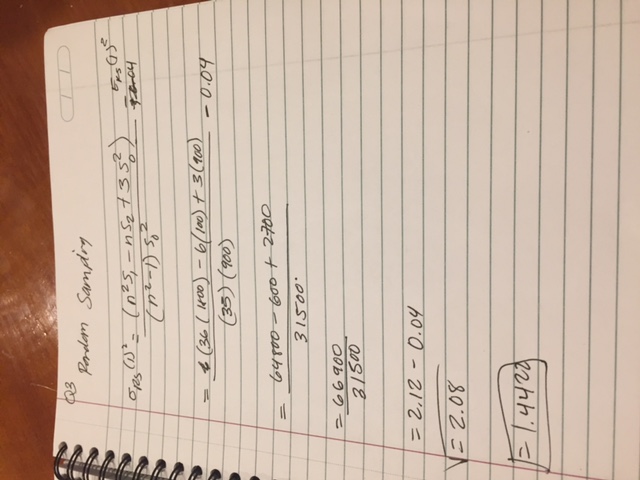 Q3
Random Sampling
σRS(1)² = (n²S₁ - nS₂ + 3S₀²) / (n²-1) S₀² - σRS(1)²
= (36(1800) - 6(100) + 3(900) / (35)(900) - 0.04
= 64800 - 600 + 2700 / 31500
= 66900 / 31500
= 2.12 - 0.04
√= 2.08
= 1.4422